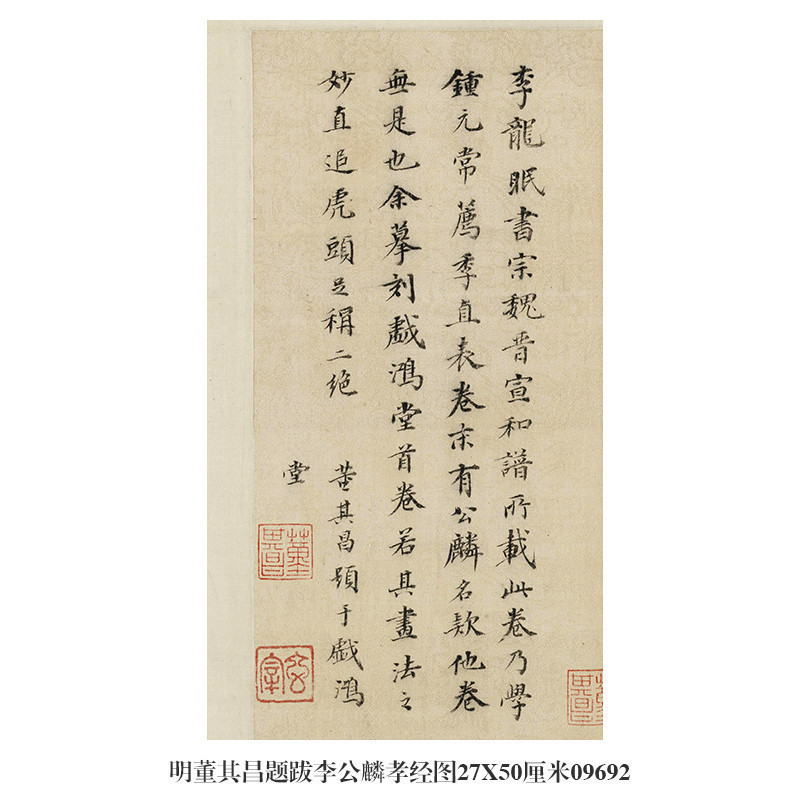 李龍眠書宗魏晋宣和譜所載此卷乃學
鍾元常薦季直表卷末有公麟名款他卷
無是也余摹刻戲鴻堂首卷若其畫法之
妙直追虎頭足稱二絶
董其昌題于戲鴻
堂
董其昌
玄宰
明董其昌题跋李公麟孝经图27X50厘米09692